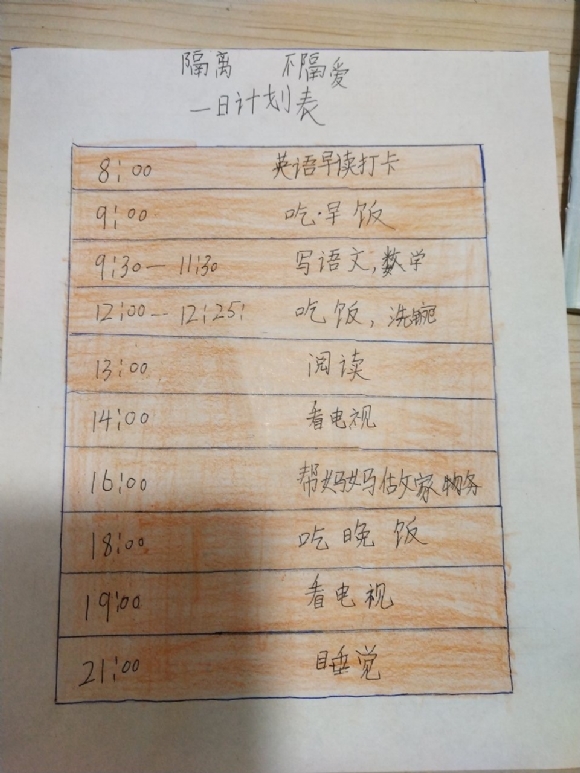 隔离 不隔爱
一日计划表
8:00 英语早读打卡
9:00 吃·早饭
9:30— 11:30 写语文,数学
12:00-- 12:25: 吃饭,洗碗
13:00 阅读
14:00 看电视
16:00 帮妈妈估攵家物务
18:00 吃晚饭
19:00 看电视
21:00 睡觉